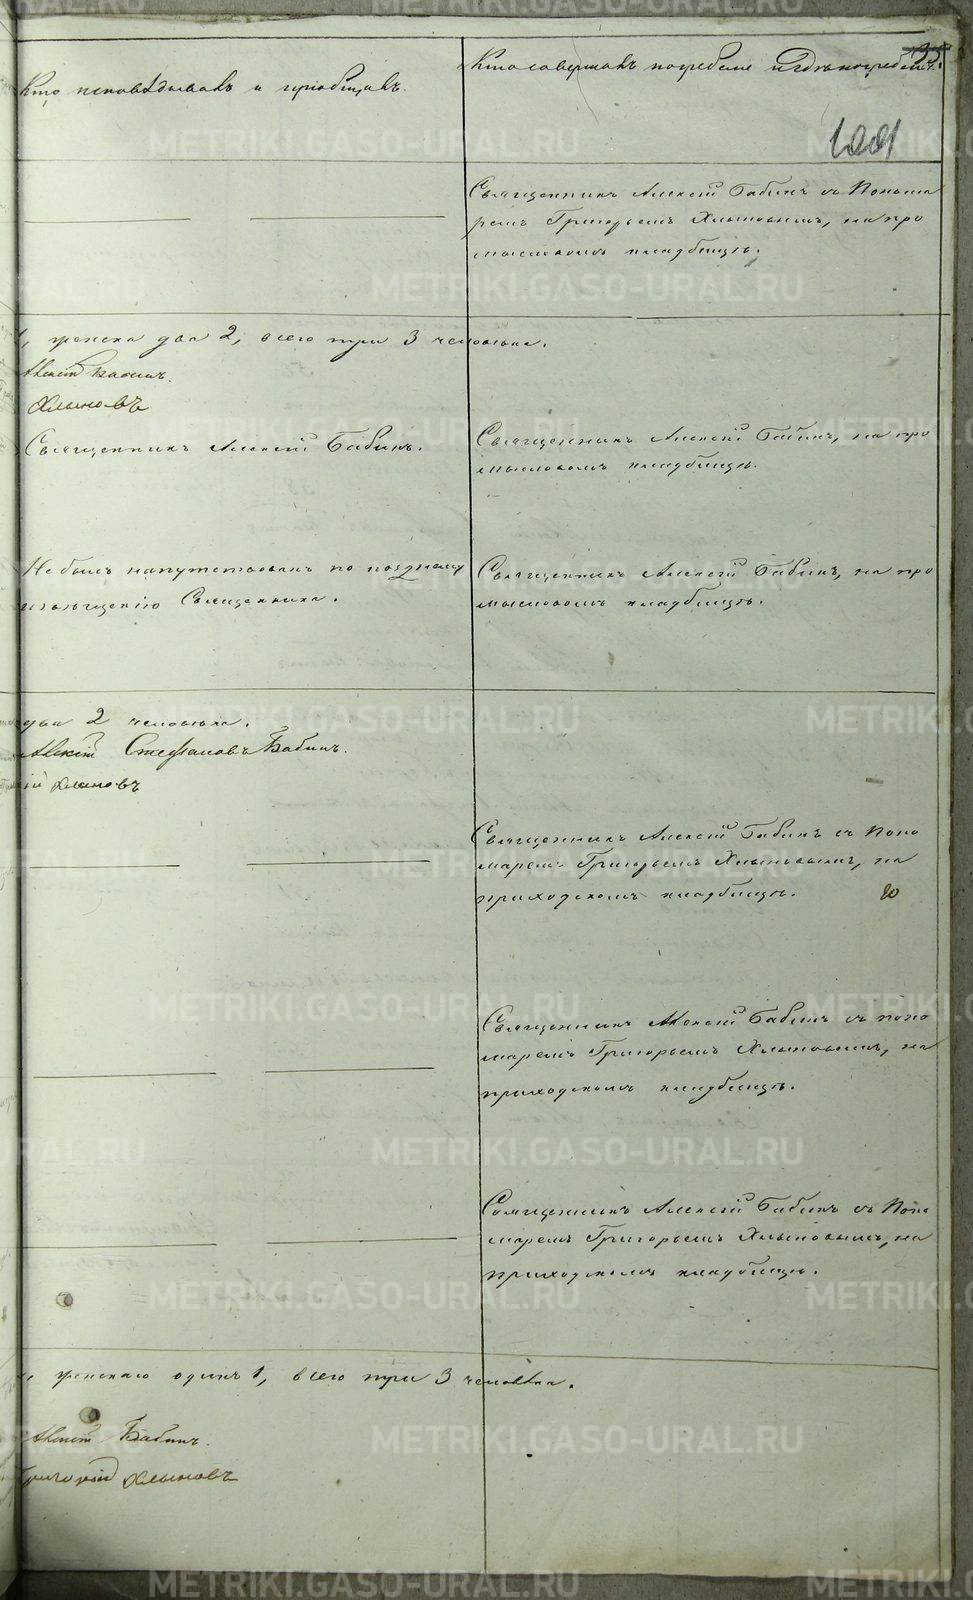 Кто исповѣдывалъ и пріобщалъ.
Кто совершалъ погребеніе и гдѣ погребены.
135.
Священникъ Алексій Бабинъ съ Понома
ремъ Григорьемъ Хлыновымъ, на про
мысловомъ кладбищѣ.
женска два 2, всего три 3 человѣка.
Алексій Бабинъ.
Хлыновъ
Священникъ Алексій Бабинъ.
Священникъ Алексій Бабинъ, на про
мысловомъ кладбищѣ.
Не былъ напутствованъ по позднему
извѣщенію Священника.
Священникъ Алексій Бабинъ, на про
мысловомъ кладбищѣ.
два 2 человѣка.
Алексій Стефановъ Бабинъ.
Хлыновъ
Священникъ Алексій Бабинъ съ Поно
маремъ Григорьемъ Хлыновымъ, на
приходскомъ кладбищѣ.
Священникъ Алексій Бабинъ съ поно
маремъ Григорьемъ Хлыновымъ, на
приходскомъ кладбищѣ.
Священникъ Алексій Бабинъ съ Поно
маремъ Григорьемъ Хлыновымъ, на
приходскомъ кладбищѣ.
женскаго одинъ 1, всего три 3 человѣка.
Алексій Бабинъ.
Григорій Хлыновъ
METRIKI.GASO-URAL.RU